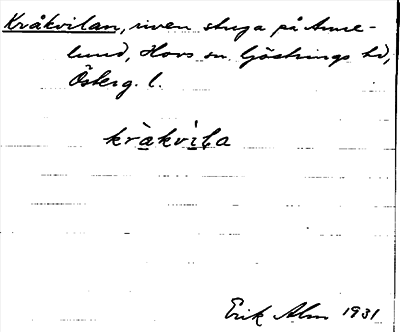 Kråkvilan, riven stuga på Anne-
lund, Hovs sn. Göstrings hd,
Österg. l.
kràkvìla
Erik Alm 1931